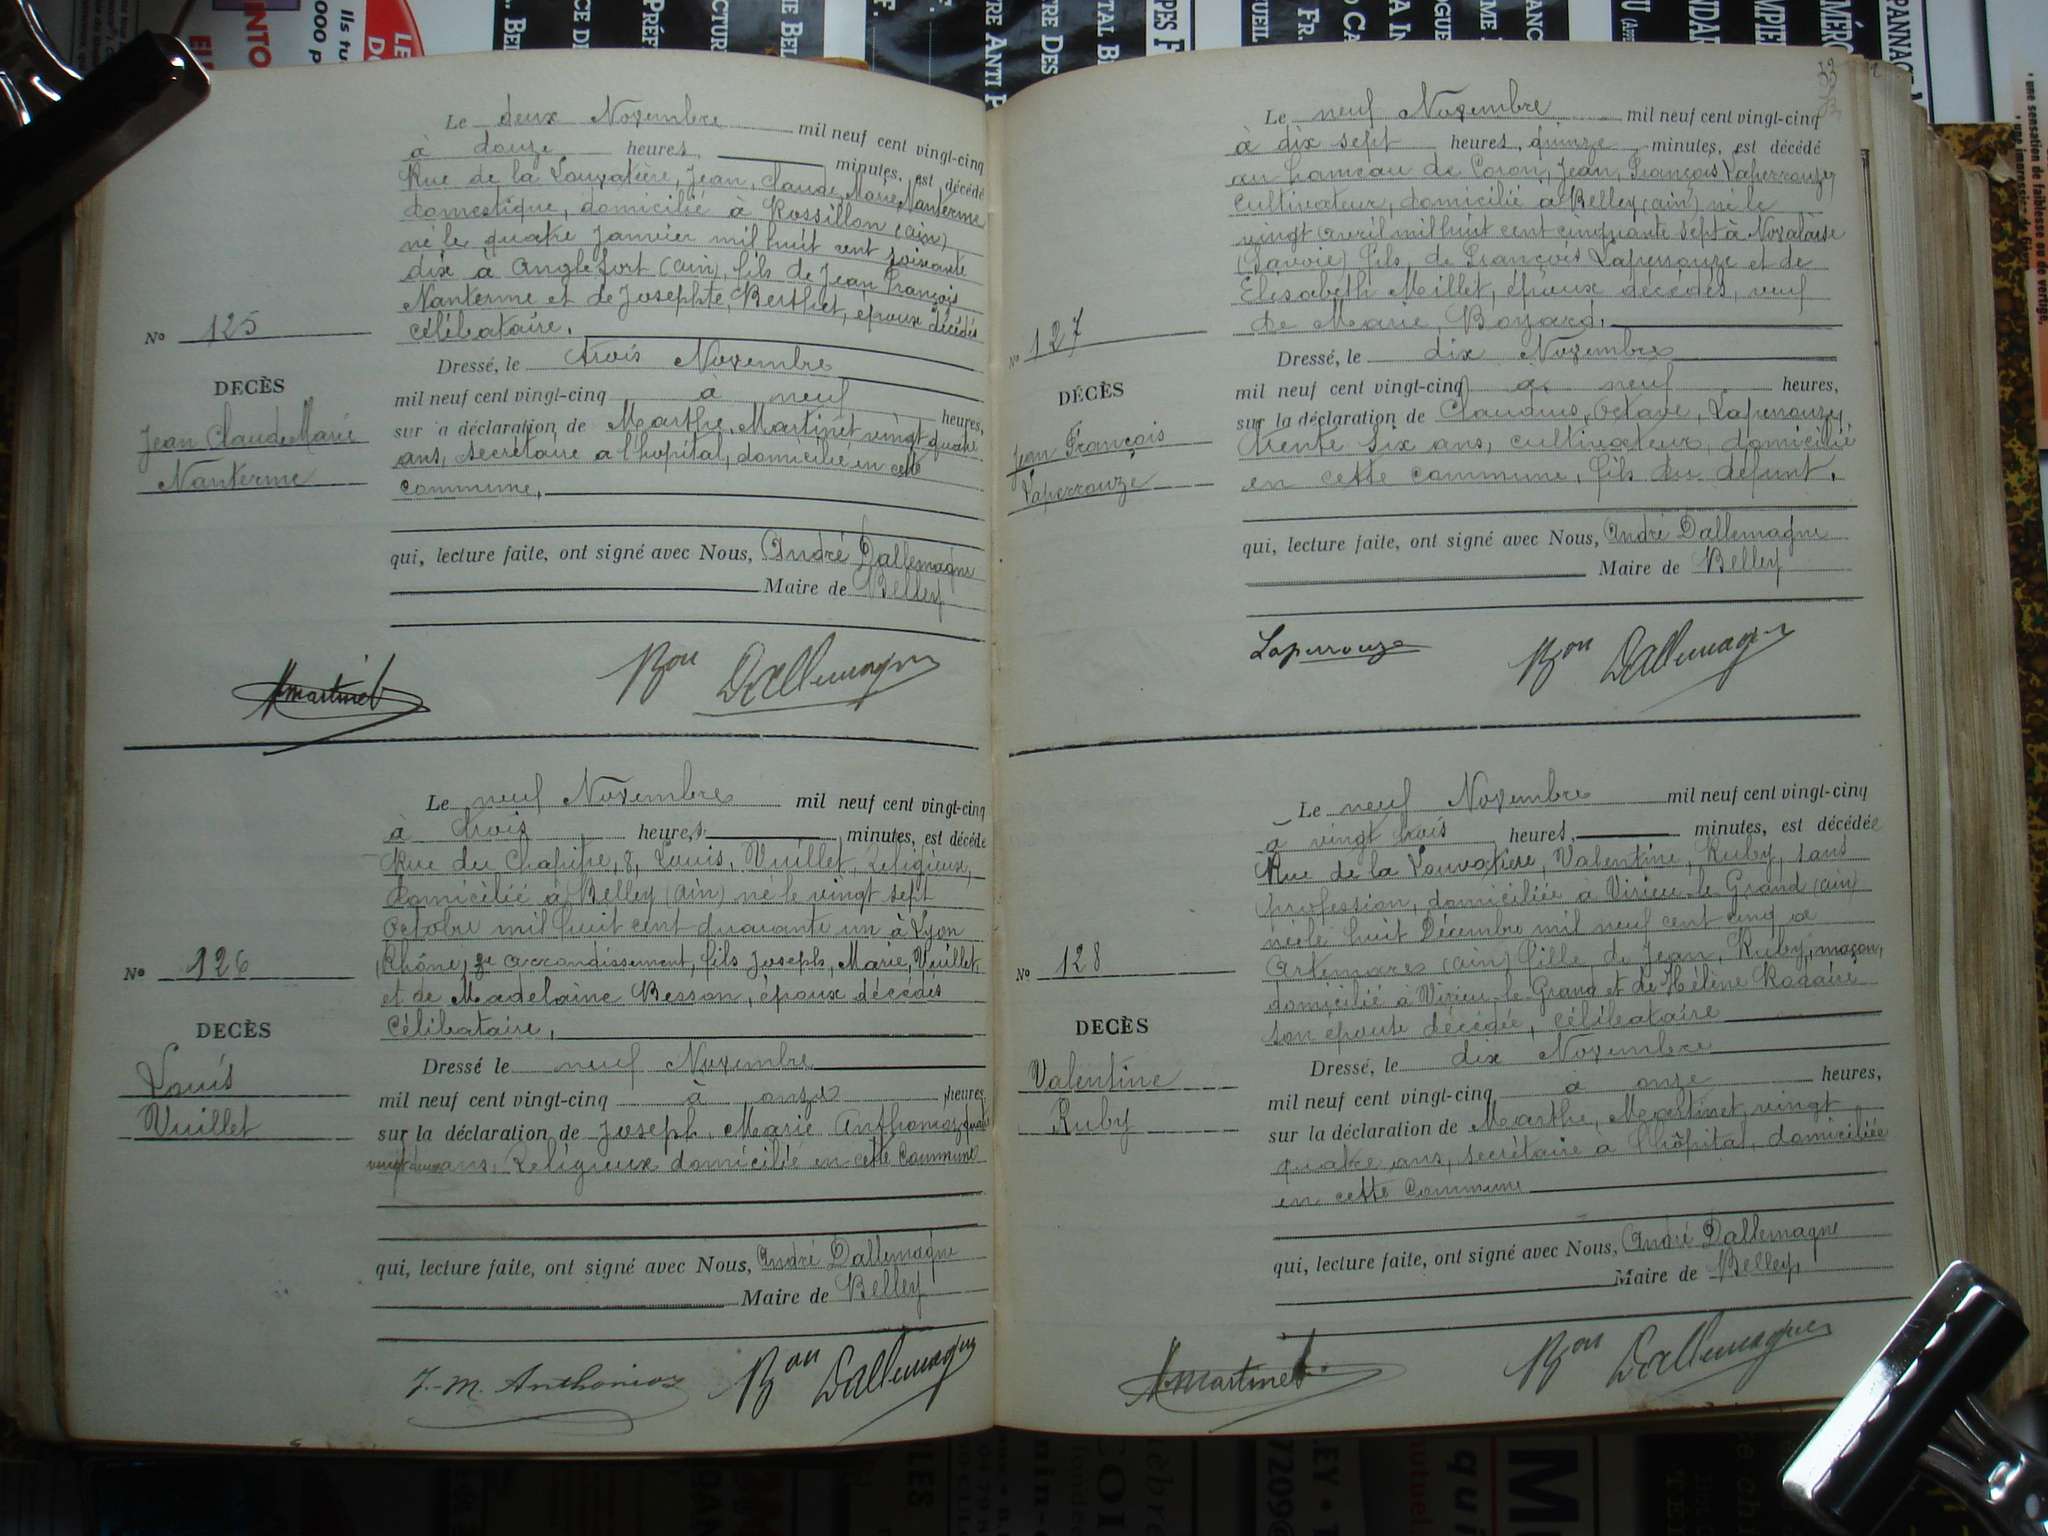 Le deux Novembre mil neuf cent vingt-cinq
à douze heures, minutes, est décédé
Rue de la Louvatière, Jean, Claude, Marie, Nanterme
domestique, domicilié à Rossillon (Ain)
né le quatre Janvier mil huit cent soixante
dix à Anglefort (Ain), fils de Jean François
Nanterme et de Josephte, Berthet, époux décédés
célibataire.
No 125
DECÈS
Jean Claude Marie
Nanterme
Dressé, le trois Novembre
mil neuf cent vingt-cinq à neuf heures,
sur la déclaration de Marthe, Martinet vingt quatre
ans, secrétaire a l'hopital, domiciliée en cette
commune.
qui, lecture faite, ont signé avec Nous, André Dallemagne
Maire de Belley
Martinet Bon Dallemagne
Le neuf Novembre mil neuf cent vingt-cinq
à trois heures minutes, est décédé
Rue du Chapitre, 8, Louis, Vuillet, Religieux,
domicilié à Belley (Ain) né le vingt sept
Octobre mil huit cent quarante un à Lyon
(Rhône) arrondissement, fils Joseph, Marie, Vuillet,
et de Madelaine Besson, époux décédés
Célibataire.
No 126
DECÈS
Louis
Vuillet
Dressé le neuf Novembre
mil neuf cent vingt-cinq à onze heures
sur la déclaration de Joseph, Marie Anthonioz quatre
vingt deux ans, Religieux domicilié en cette Commune
qui, lecture faite, ont signé avec Nous, André Dallemagne
Maire de Belley
J.-M. Anthonioz Bon Dallemagne
Le neuf Novembre mil neuf cent vingt-cinq
à dix sept heures, quinze minutes, est décédé
au hameau de Coron, Jean, François Laperrouze
Cultivateur, domicilié à Belley (Ain) né le
vingt avril mil huit cent cinquante sept à Novalaise
(Savoie) fils, de François Laperrouze et de
Elisabeth Millet, époux décédés, veuf
de Marie, Boyard.
No 127
DÉCÈS
Jean François
Laperrouze
Dressé, le dix Novembre
mil neuf cent vingt-cinq à neuf heures,
sur la déclaration de Claudius, Octave, Laperrouze
trente six ans, cultivateur, domicilié
en cette commune, fils du défunt.
qui, lecture faite, ont signé avec Nous, André Dallemagne
Maire de Belley
Laperrouze Bon Dallemagne
Le neuf Novembre mil neuf cent vingt-cinq
à vingt trois heures, minutes, est décédée
Rue de la Louvatière, Valentine, Ruby, sans
profession, domiciliée à Virieu-le-Grand (Ain)
née le huit Décembre mil neuf cent cinq à
Artemare (Ain) fille, de Jean, Ruby, maçon,
domicilié à Virieu-le-Grand et de Hélène
son épouse décédée, célibataire
No 128
DECÈS
Valentine
Ruby
Dressé, le dix Novembre
mil neuf cent vingt-cinq à onze heures,
sur la déclaration de Marthe, Martinet, vingt
quatre ans, secrétaire a l'hôpital, domiciliée
en cette Commune
qui, lecture faite, ont signé avec Nous, André Dallemagne
Maire de Belley
Martinet Bon Dallemagne